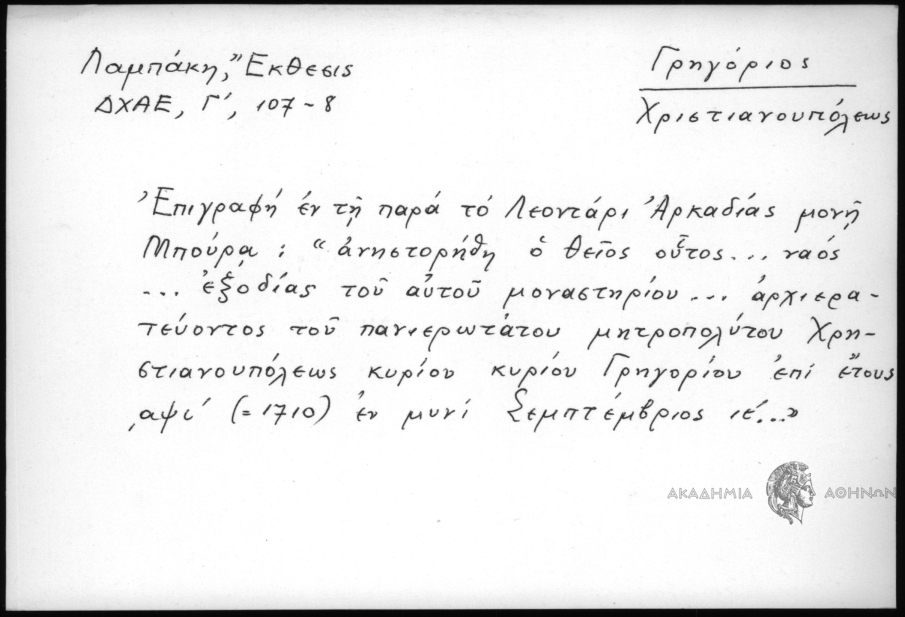 Λαμπάκη, Ἔκθεσις
ΔΧΑΕ, Γ', 107-8
Γρηγόριος
Χριστιανουπόλεως
Ἐπιγραφή ἐν τῇ παρά τό Λεοντάρι Ἀρκαδίας μονῇ
Μπούρα : "ἀνηστορήθη ὁ θεῖος οὗτος... ναός
... ἐξοδίας τοῦ αὐτοῦ μοναστηρίου... ἀρχιερα-
τεύοντος τοῦ πανιερωτάτου μητροπολύτου Χρη-
στιανουπόλεως κυρίου κυρίου Γρηγορίου ἐπί ἔτους
͵αψι' (=1710) ἐν μυνί Σεμπτέμβριος ιέ...»
ΑΚΑΔΗΜΙΑ ΑΘΗΝΩΝ